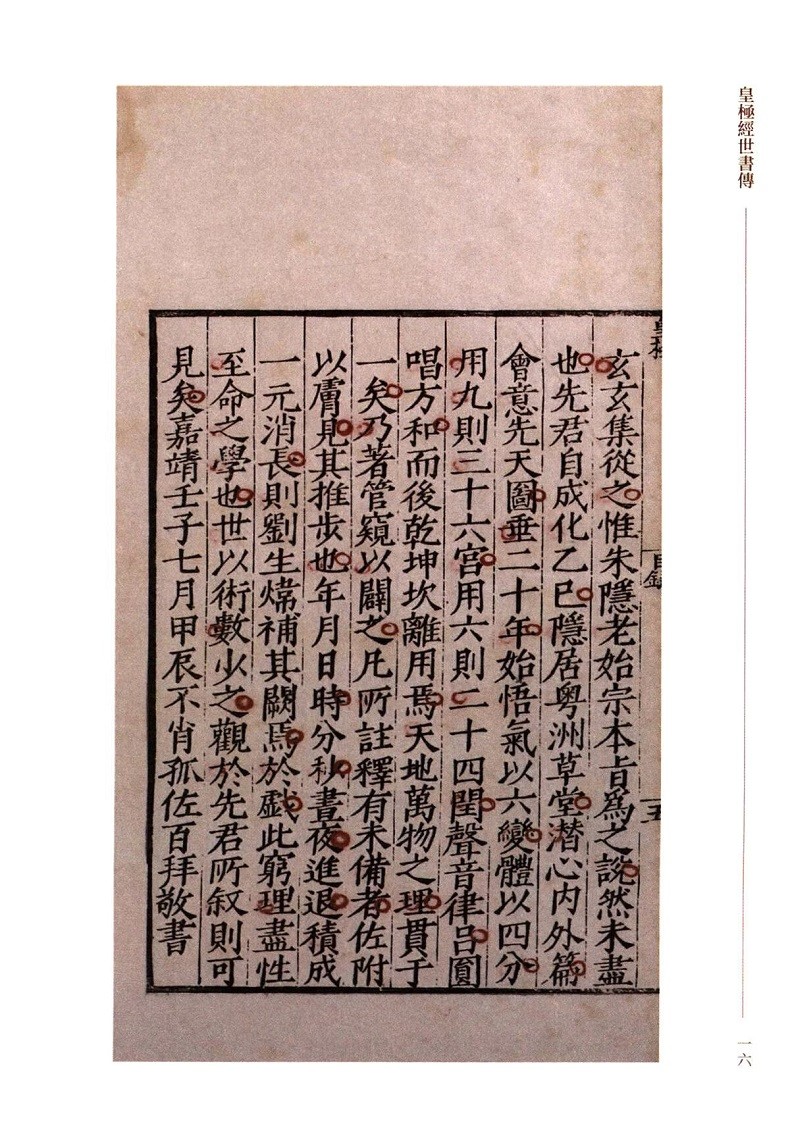 皇極經世書傳
一六
皇極
目錄
五
玄玄集從之惟朱隱老始宗本旨為之說然未盡
也先君自成化乙巳隱居粵洲草堂潛心内外篇
會意先天圖垂二十年始悟氣以六變體以四分
用九則三十六宮用六則二十四閏聲音律呂圓
唱方和而後乾坤坎離用焉天地萬物之理貫于
一矣乃著管窺以闢之凡所註釋有未備者佐附
以膚見其推步也年月日時分秒晝夜進退積成
一元消長則劉生煒補其闕焉於戲此窮理盡性
至命之學也世以術數少之觀於先君所叙則可
見矣嘉靖壬子七月甲辰不肖孤佐百拜敬書